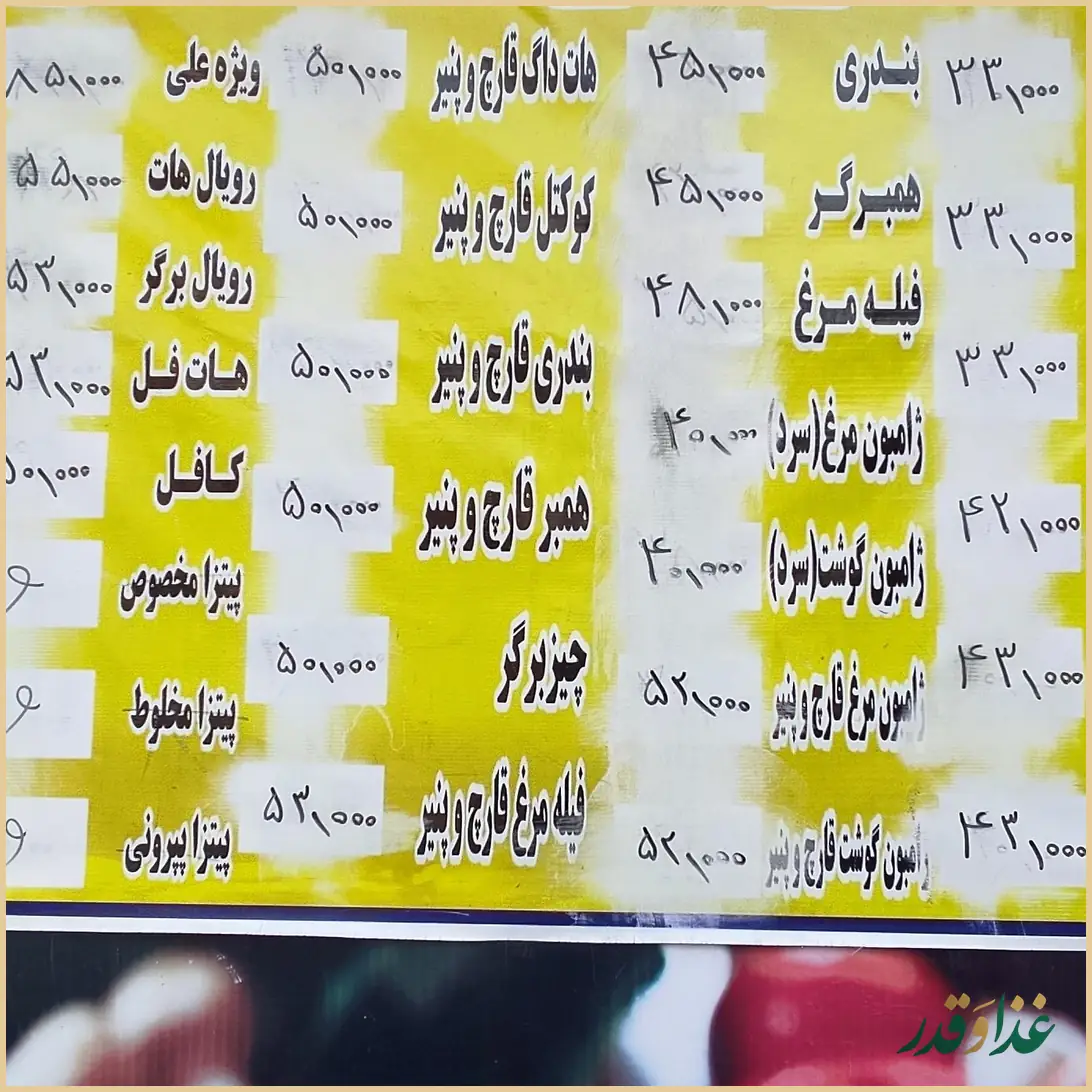 ۳۳,۰۰۰
۳۳,۰۰۰
۳۳,۰۰۰
۴۲,۰۰۰
۴۳,۰۰۰
۴۳,۰۰۰
بندری ۴۵,۰۰۰
همبرگر ۴۵,۰۰۰
فیله مرغ ۴۸,۰۰۰
ژامبون مرغ(سرد) ۴۰,۰۰۰
ژامبون گوشت(سرد) ۴۰,۰۰۰
ژامبون مرغ قارچ و پنیر ۵۲,۰۰۰
ژامبون گوشت قارچ و پنیر ۵۲,۰۰۰
هات داگ قارچ و پنیر ۵۰,۰۰۰
کوکتل قارچ و پنیر ۵۰,۰۰۰
بندری قارچ و پنیر ۵۰,۰۰۰
همبر قارچ و پنیر ۵۰,۰۰۰
چیزبرگر ۵۰,۰۰۰
فیله مرغ قارچ و پنیر ۵۳,۰۰۰
ویژه علی ۸۵,۰۰۰
رویال هات ۵۵,۰۰۰
رویال برگر ۵۳,۰۰۰
هات فل ۵۳,۰۰۰
کافل ۵۰,۰۰۰
پیتزا مخصوص
پیتزا مخلوط
پیتزا پپرونی
غذا و قدر